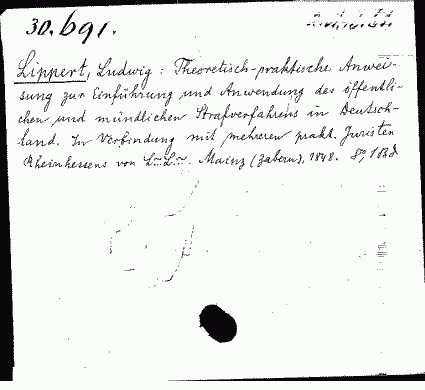 30.691.
Lippert, Ludwig: Theoretisch-praktische Anwei-
sung zur Einführung und Anwendung des öffentli-
chen und mündlichen Strafverfahrens in Deutsch-
land. In Verbindung mit mehreren prakt. Juristen
Rheinhessens von L~ L~ Mainz (Zabern), 1848. 8°, 1 Bd